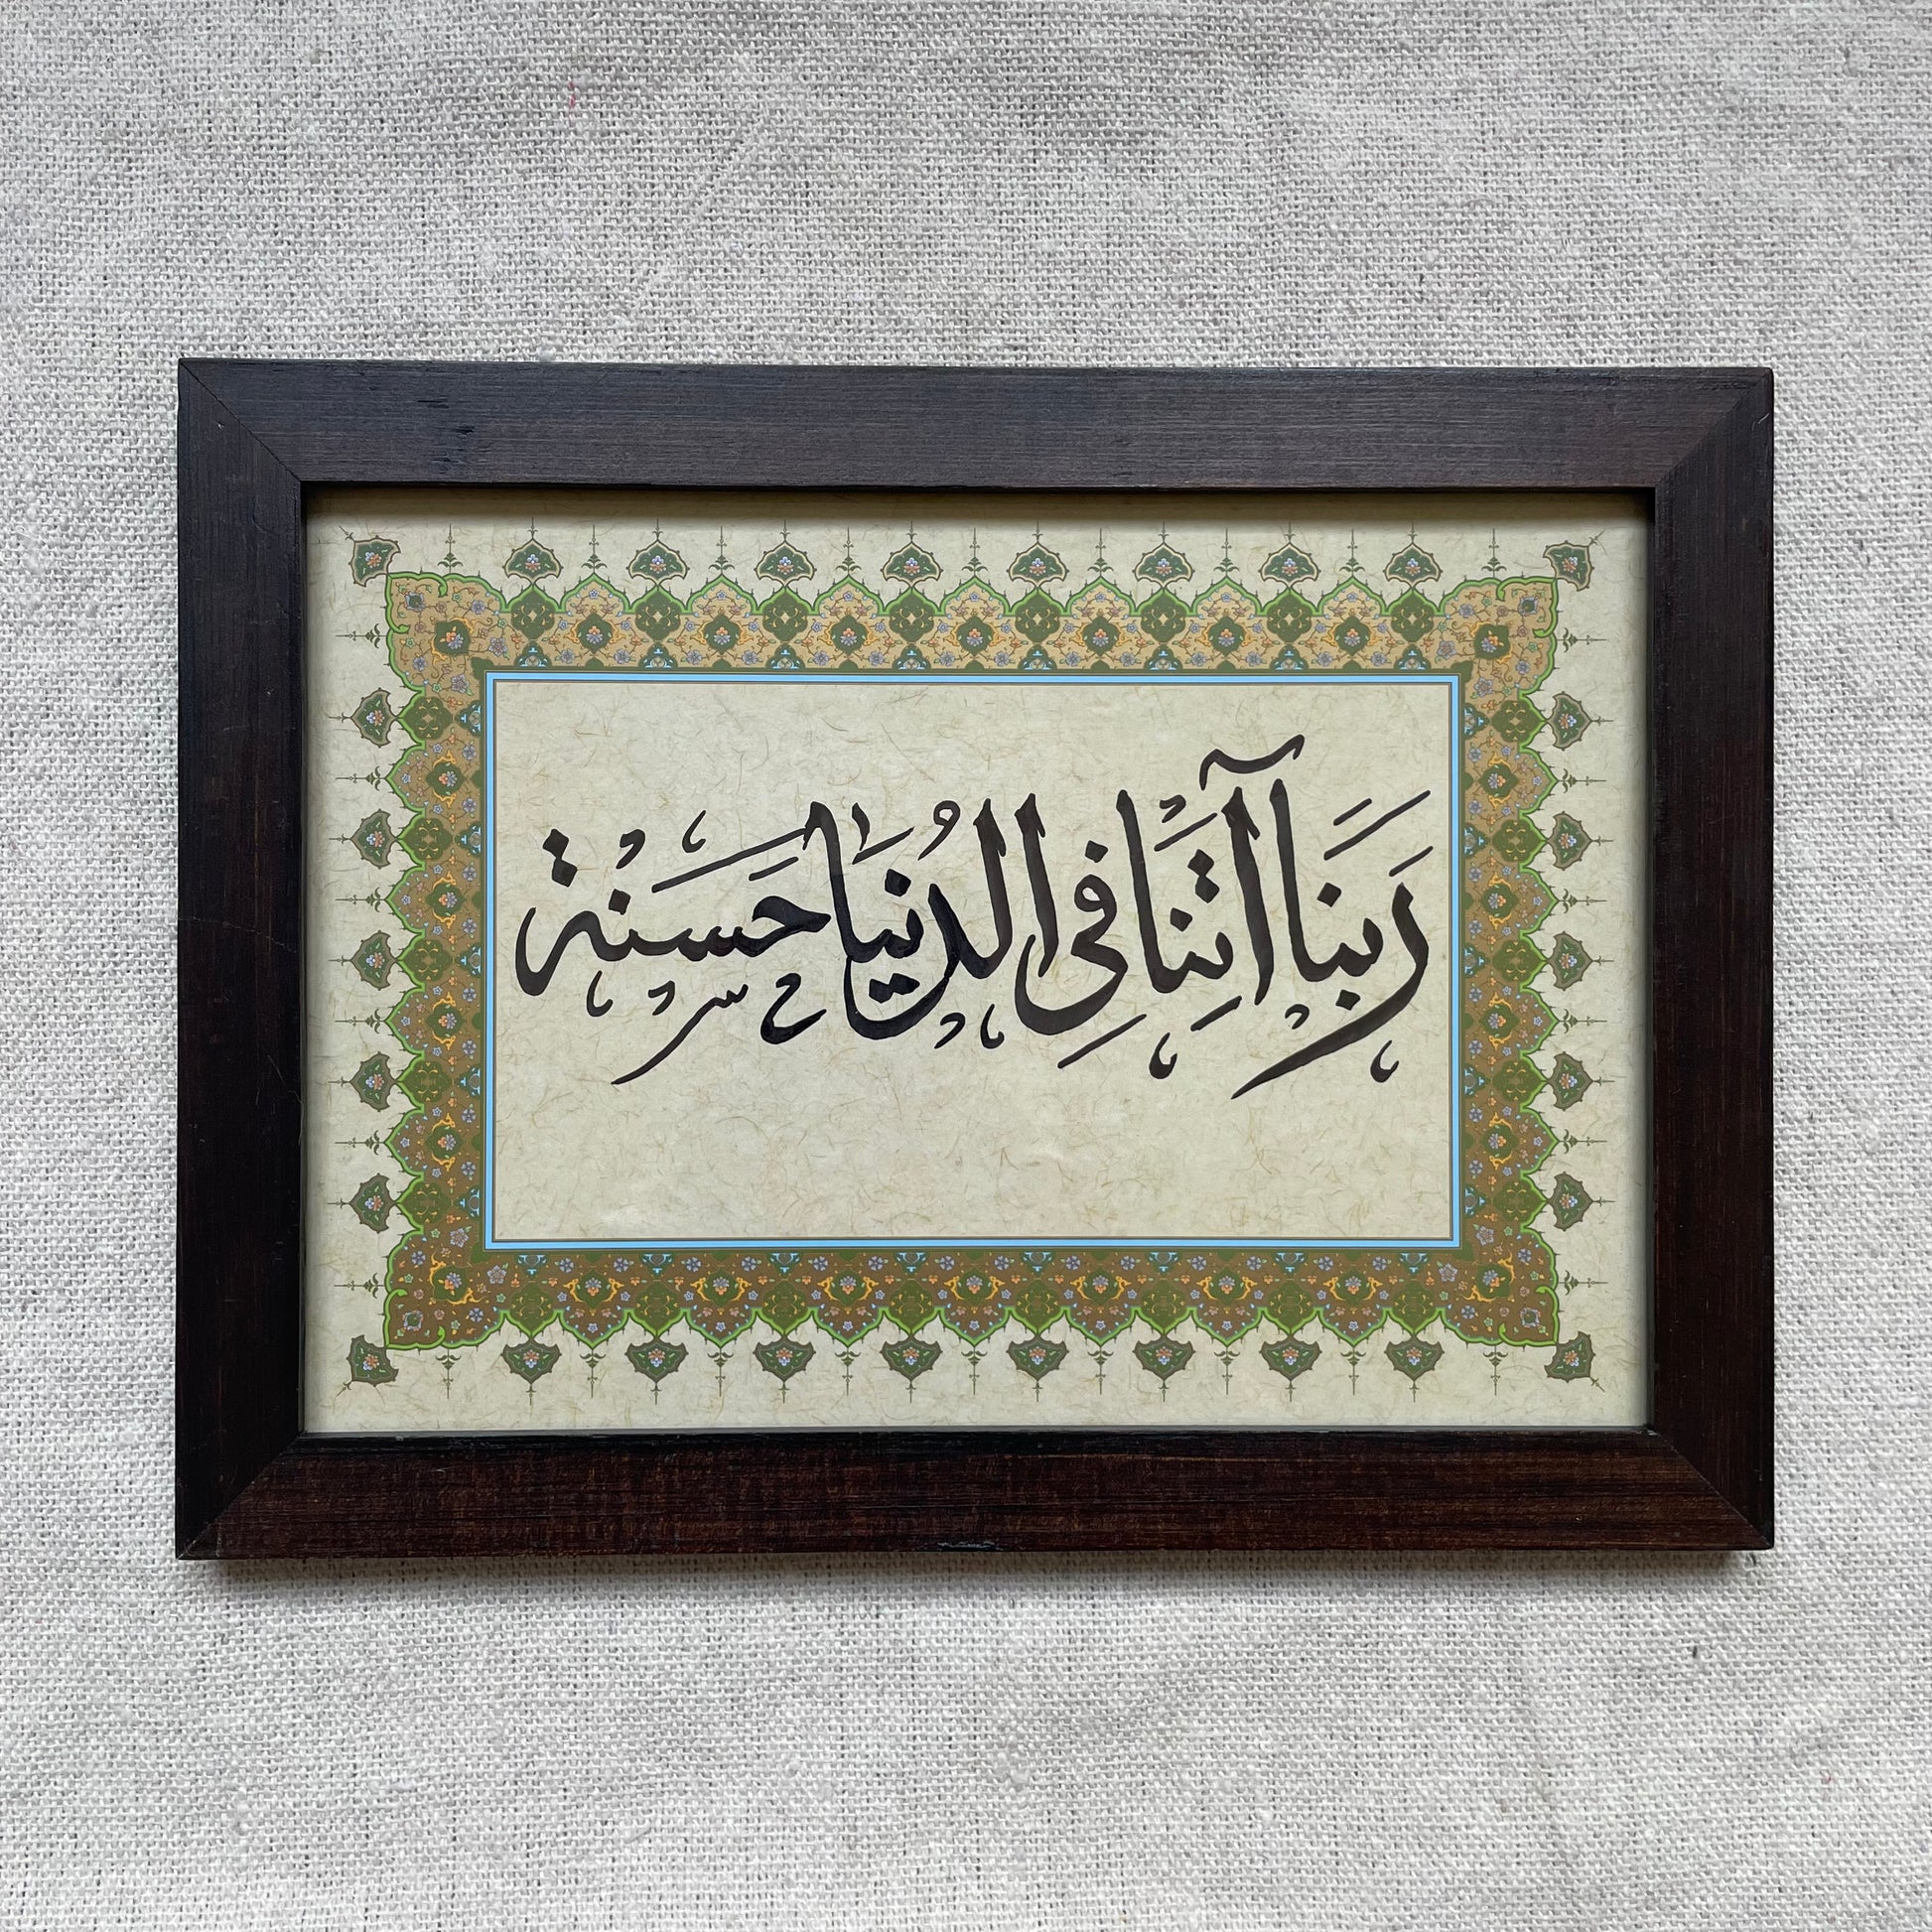 رَبَّنَا آتِنَا فِي الدُّنْيَا حَسَنَةً